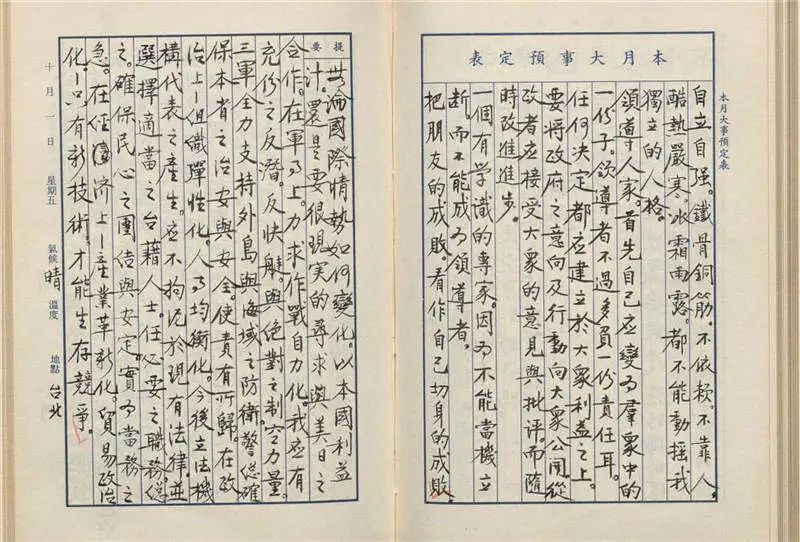 本月大事預定表
本月大事預定表
自立自强。鐵骨銅筋。不依赖。不靠人。
酷熱嚴寒。冰霜雨露。都不能動摇我
獨立的人格。
領導人家。首先自己应變为羣衆中的
一份子。领導者不过多負一份責任耳。
任何决定都应建立於大衆利益之上。
要將政府之意向及行動向大衆公開。從
政者应接受大衆的意見與批评。而隨
時改進進步。
一個有学識的專家。因为不能當機立
断。而不能成为領導者。
把朋友的成敗。看作自己切身的成敗。
提要
無論國際情勢如何變化。以本國利益
計。還是要很现实的尋求與美日之
合作。在軍事上。力求作戰自力化。我应有
充份之反潛。反快艇與绝對之制空力量。
三軍全力支持外島與海域之防衛警總確
保本省之治安與安全。使責有所歸。在政
治上-组織彈性化。人事均衡化。今後立法機
構代表之產生。应不拘泥於现有法律。並
選擇適當之台藉人士。任必要之職務從
之。確保民心之團结與安定。實为當務之
急。在经濟上-產業革新化。貿易政治
化。-只有新技術。才能生存競爭。
十月一日 星期五 氣候 晴 溫度 地點 台北